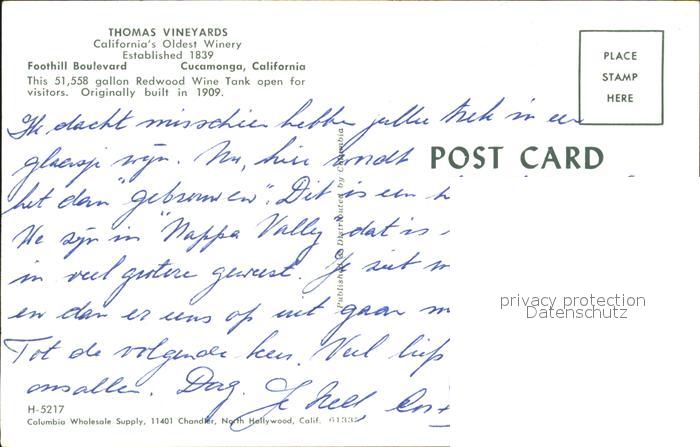 THOMAS VINEYARDS
California's Oldest Winery
Established 1839
Foothill Boulevard Cucamonga, California
This 51,558 gallon Redwood Wine Tank open for
visitors. Originally built in 1909.
PLACE
STAMP
HERE
POST CARD
Ik dacht misschien hebben jullie trek in een
glaasje wijn. Nu, hier wordt
het dan "gebrouwen". Dit is een
We zijn in "Nappa Valley" dat is
in veel grotere geweest. Je
en dan er eens op uit gaan
Tot de volgende keer. Veel liefs
onsallen. Dag.
Published & Distributed by Columbia
privacy protection
Datenschutz
H-5217
Columbia Wholesale Supply, 11401 Chandler, North Hollywood, Calif.